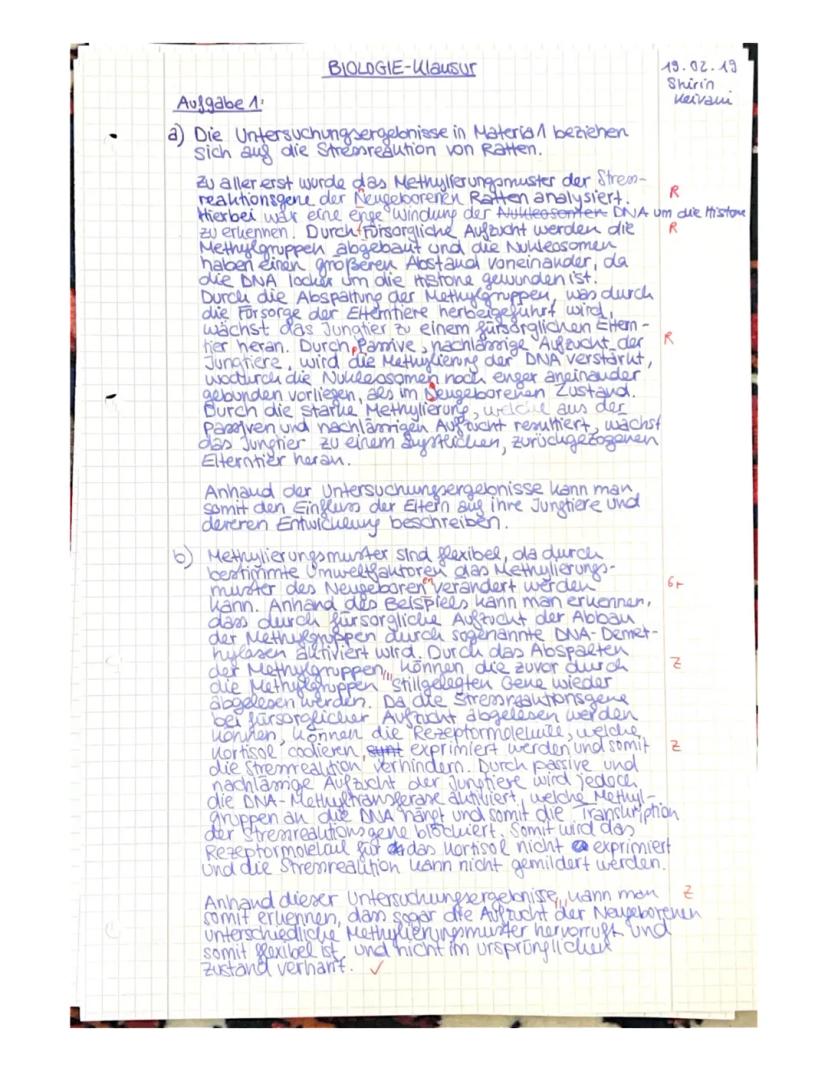 BIOLOGIE-Klausur
19.02.19
Shirin
Keivani
Aufgabe 1:
a) Die Untersuchungsergebnisse in Material 1 beziehen
sich auf die Stressreaktion von Ratten.
Zu aller erst wurde das Methylierungsmuster der Stress-
reaktionsgene der Neugeborenen Ratten analysiert. R
Hierbei war eine enge Windung der Nukleosomen DNA um die Histone
zu erkennen. Durch Fürsorgliche Aufzucht werden die R
Methylgruppen abgebaut und die Nukleosomen
haben einen größeren Abstand voneinander, da
die DNA locker um die Histone gewunden ist.
Durch die Abspaltung der Methylgruppen, was durch
die Fürsorge der Elterntiere herbeigeführt wird,
wächst das Jungtier zu einem fürsorglichen Eltern-
tier heran. Durch Passive, nachlässige Aufzucht der R
Jungtiere, wird die Methylierung der DNA verstärkt,
wodurch die Nukleosomen noch enger aneinander
gebunden vorliegen, als im Neugeborenen Zustand.
Durch die starke Methylierung, welche aus der
Passiven und nachlässigen Aufzucht resultiert, wächst
das Jungtier zu einem ängstlichen, zurückgezogenen
Elterntier heran.
Anhand der Untersuchungsergebnisse kann man
somit den Einfluss der Eltern auf ihre Jungtiere und
dereren Entwicklung beschreiben.
b) Methylierungsmuster sind flexibel, da durch
bestimmte Umweltfaktoren das Methylierungs-
muster des Neugeboren en verändert werden Gr
kann. Anhand des Beispiels kann man erkennen,
dass durch fürsorgliche Aufzucht der Abbau
der Methylgruppen durch sogenannte DNA-Demet-
hylasen aktiviert wird. Durch das Abspalten
der Methylgruppen, können die zuvor durch Z
die Methylgruppen stillgelegten Gene wieder
abgelesen werden. Da die Stressreaktionsgene
bei fürsorglicher Aufzucht abgelesen werden
können, können die Rezeptormoleküle, welche
Kortisol codieren, sunt exprimiert werden und somit Z
die Stressreaktion verhindern. Durch passive und
nachlässige Aufzucht der Jungtiere wird jedoch
die DNA-Methyltransferase aktiviert, welche Methyl-
gruppen an die DNA hängt und somit die Transkription
der Stressreaktionsgene blockiert. Somit wird das
Rezeptormolekül für das Kortisol nicht exprimiert
und die Stressreaktion kann nicht gemildert werden.
Anhand dieser Untersuchungsergebnisse, kann man Z
somit erkennen, dass sogar die Aufzucht der Neugeborenen
unterschiedliche Methylierungsmuster hervorruft und
somit flexibel ist und nicht im ursprünglichen
Zustand verharrt. ✓